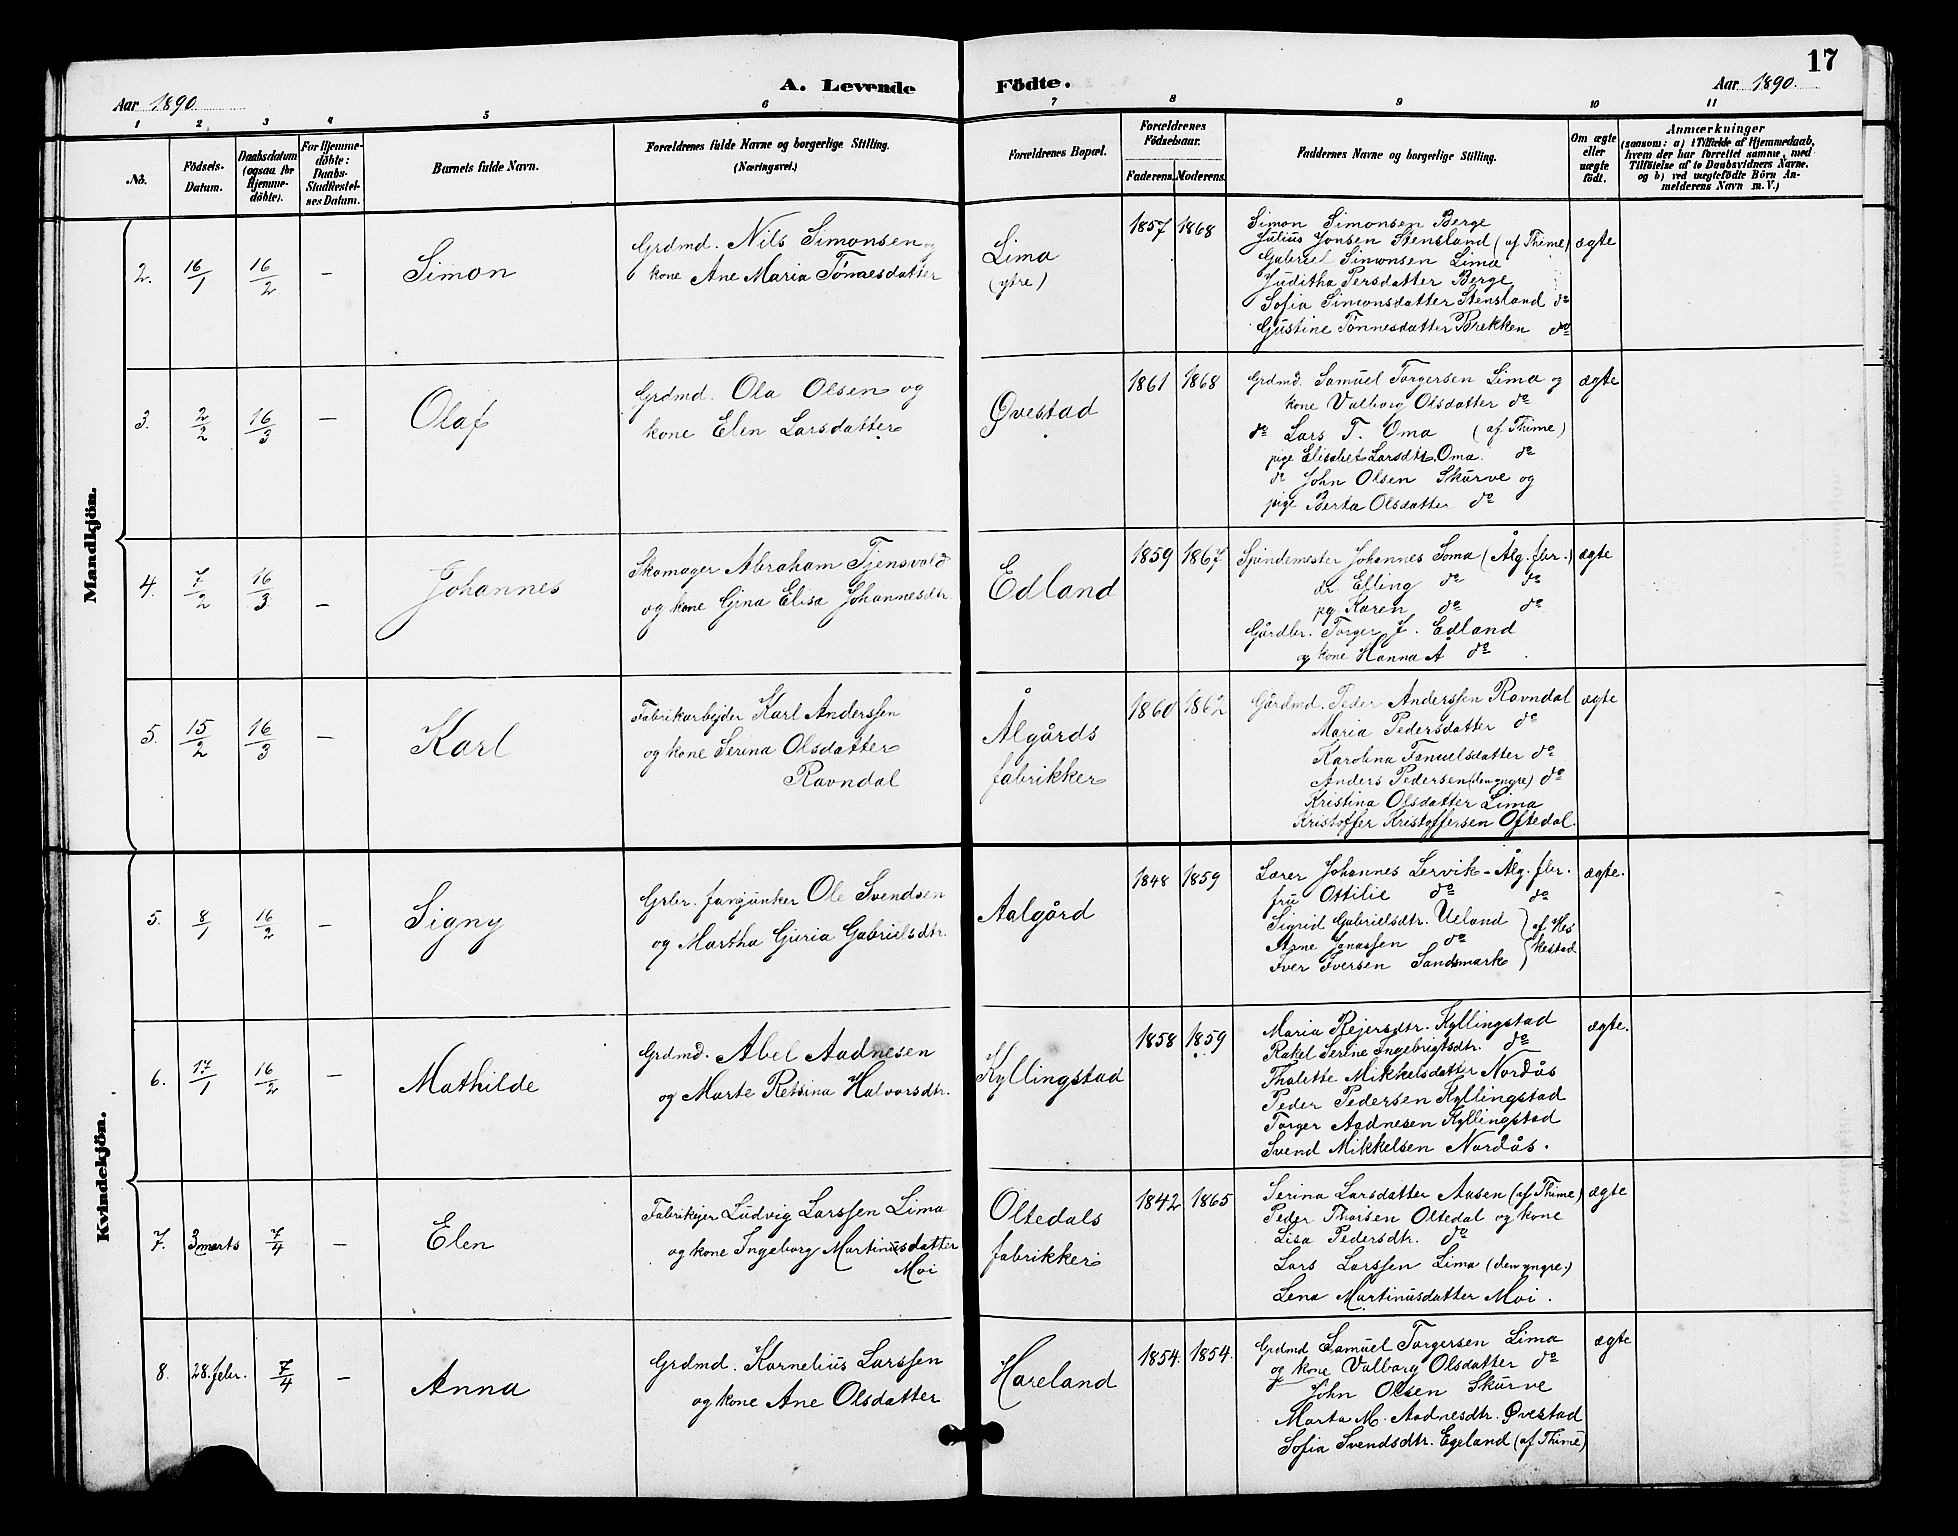 17
A. Levende Födte.
Aar 1890.
Aar 1890.
1 2 3 4 5 6 7 8 9 10 11
No.
Födsels-
Datum.
Daabsdatum
(ogsaa for
Hjemme-
döbte).
For Hjemme-
döbte:
Daabs-
Stadfæstel-
ses Datum.
Barnets fulde Navn.
Forældrenes fulde Navne og borgerlige Stilling.
(Næringsvei.)
Forældrenes Bopæl.
Forældrenes
Födselsaar.
Faderens. Moderens.
Faddernes Navne og borgerlige Stilling.
Om ægte
eller
uægte
født.
Anmærkninger
(saasom: a) i Tilfælde af Hjemmedaab,
hvem der har forrettet samme, med
Tilföielse af to Daabsvidners Navne,
og b) ved uægtefödte Börn An-
melderens Navn m. V.)
Mandkjön.
2. 16/1 16/2 — Simon
Grdmd. Nils Simonsen og
kone Ane Maria Tønnesdatter
Lima
(ytre)
1857 1868
Simon Simonsen Berge
Julius Jonsen Stensland (af Thime)
Gabriel Simonsen Lima
Juditha Persdatter Berge
Sofia Simonsdatter Stensland do
Gustine Tønnesdatter Brekken do
ægte
3. 2/2 16/3 — Olaf
Grdmd. Ola Olsen og
kone Elen Larsdatter
Øvestad
1861 1868
Grdmd. Samuel Torgersen Lima og
kone Valborg Olsdatter do
do Lars T. Oma (af Thime)
pige Elisabet Larsdtr. Oma do
do John Olsen Skurve og
pige Berta Olsdatter do
ægte
4. 7/2 16/3 — Johannes
Skomager Abraham Tjensvold
og kone Gina Elisa Johannesdtr
Edland
1859 1867
Spindemester Johannes Soma (Ålg. fbr.)
dr Elling do do
pg. Karen do do
Gårdbr. Torger J. Edland
og kone Hanna A do
ægte
5. 15/2 16/3 — Karl
Fabrikarbejder Karl Anderssen
og kone Serina Olsdatter
Ravndal
Ålgårds
fabrikker
1860 1862
Gårdmd. Peder Anderssen Ravndal
Maria Pedersdatter do
Karolina Fanuelsdatter do
Anders Pedersen (den yngre) do
Kristina Olsdatter Lima
Kristoffer Kristoffersen Oftedal.
ægte
Kvindekjön.
5. 8/1 16/2 — Signy
Grbr. fanjunker Ole Svendsen
og Martha Guria Gabrielsdtr.
Aalgård
1848 1859
Lærer Johannes Lervik - Ålg. fbr.
fru Ottilie do do
Sigrid Gabrielsdtr. Ueland
Arne Jonassen do
Iver Iversen Sandsmark
af Hes
kestad
ægte.
6. 17/1 16/2 — Mathilde
Grdmd. Abel Aadnesen
og Marte Retsina Halvorsdtr.
Kyllingstad
1858 1859
Maria Rejersdtr. Kyllingstad
Rakel Serine Ingebrigtsdtr. do
Thalette Mikkelsdatter Nordås
Peder Pedersen Kyllingstad
Torger Aadnesen Kyllingstad
Svend Mikkelsen Nordås.
ægte.
7. 3 marts 7/4 — Elen
Fabrikejer Ludvig Larssen Lima
og kone Ingeborg Martinusdatter
Moi
Oltedals
fabrikker
1842 1865
Serina Larsdatter Aasen (af Thime)
Peder Thoisen Oltedal og kone
Lisa Pedersdtr. do
Lars Larssen Lima (den yngre.)
Lena Martinusdatter Moi.
ægte
8. 28. febr. 7/4 — Anna
Grdmd. Kornelius Larssen
og kone Ane Olsdatter
Hareland
1854. 1854.
Grdmd Samuel Torgersen Lima
og kone Valborg Olsdatter do
John Olsen Skurve
Marta M. Aadnesdtr. Øvestad
Sofia Svendsdtr. Egeland (af Thime)
ægte